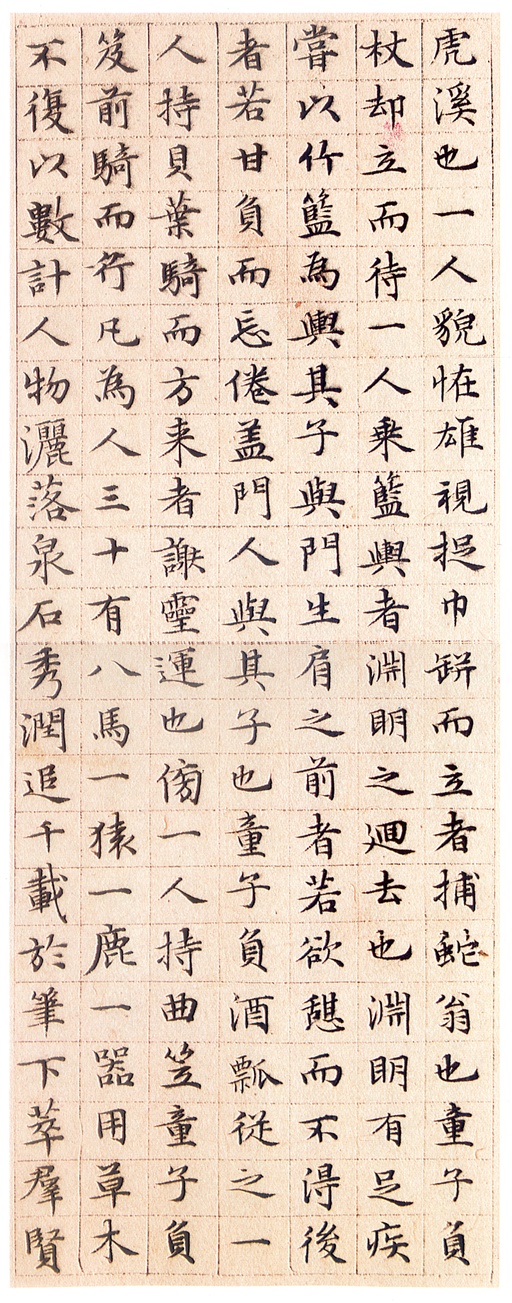 虎溪也一人貌恠雄視捉巾缾而立者捕蛇翁也童子負
杖却立而待一人乗籃輿者淵明之迴去也淵明有足疾
嘗以竹籃為輿其子與門生肩之前者若欲憇而不得後
者若甘負而忘倦盖門人與其子也童子負酒瓢従之一
人持貝葉騎而方来者謝靈運也傍一人持曲笠童子負
笈前騎而行凡為人三十有八馬一猿一鹿一器用草木
不復以數計人物灑落泉石秀潤追千載於筆下萃羣賢